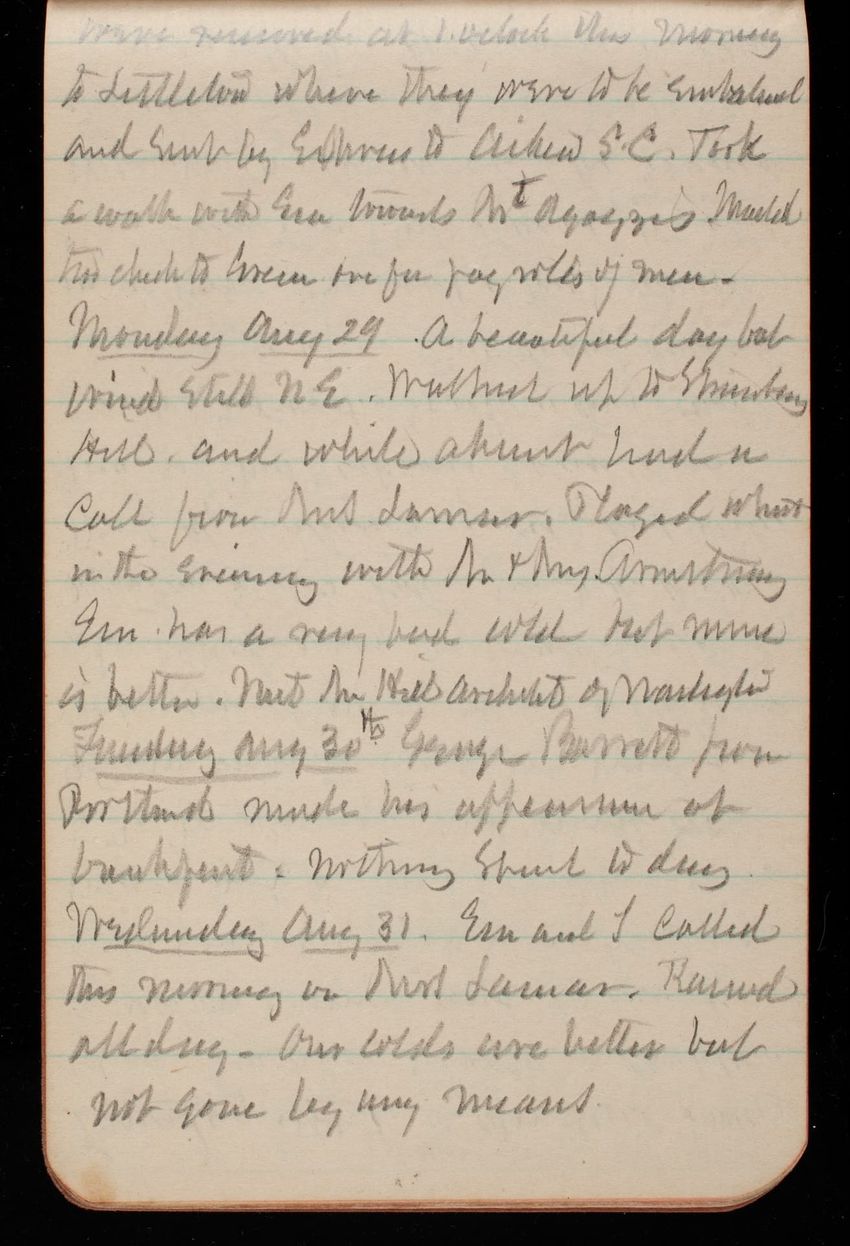 were removed at 1 oclock this morning
to Littleton where they were to be embalmed
and sent by Express to Aiken S.C. Took
a walk with Em towards Mt Agassiz Mailed
this check to Green ove for pay rolls of men -
Monday Aug 29 . A beautiful day but
wind still N E . Walked up to Strawberry
Hill . and while absent had a
Call from Mrs Lamar . Played whist
in the evening with Mr & Mrs. Armstrong
Em has a very bad cold but mine
is better . Met Mr Hill architect of Washington
Tuesday Aug 30th George Barrett from
Portland made his appearance at
breakfast . Nothing Special to day .
Wednesday Aug 31 . Em and I Called
this morning on Mrs Lamar . Rained
all day - Our colds are better but
not gone by any means